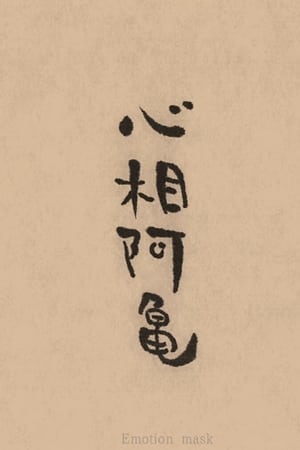 心相阿亀
Emotion mask